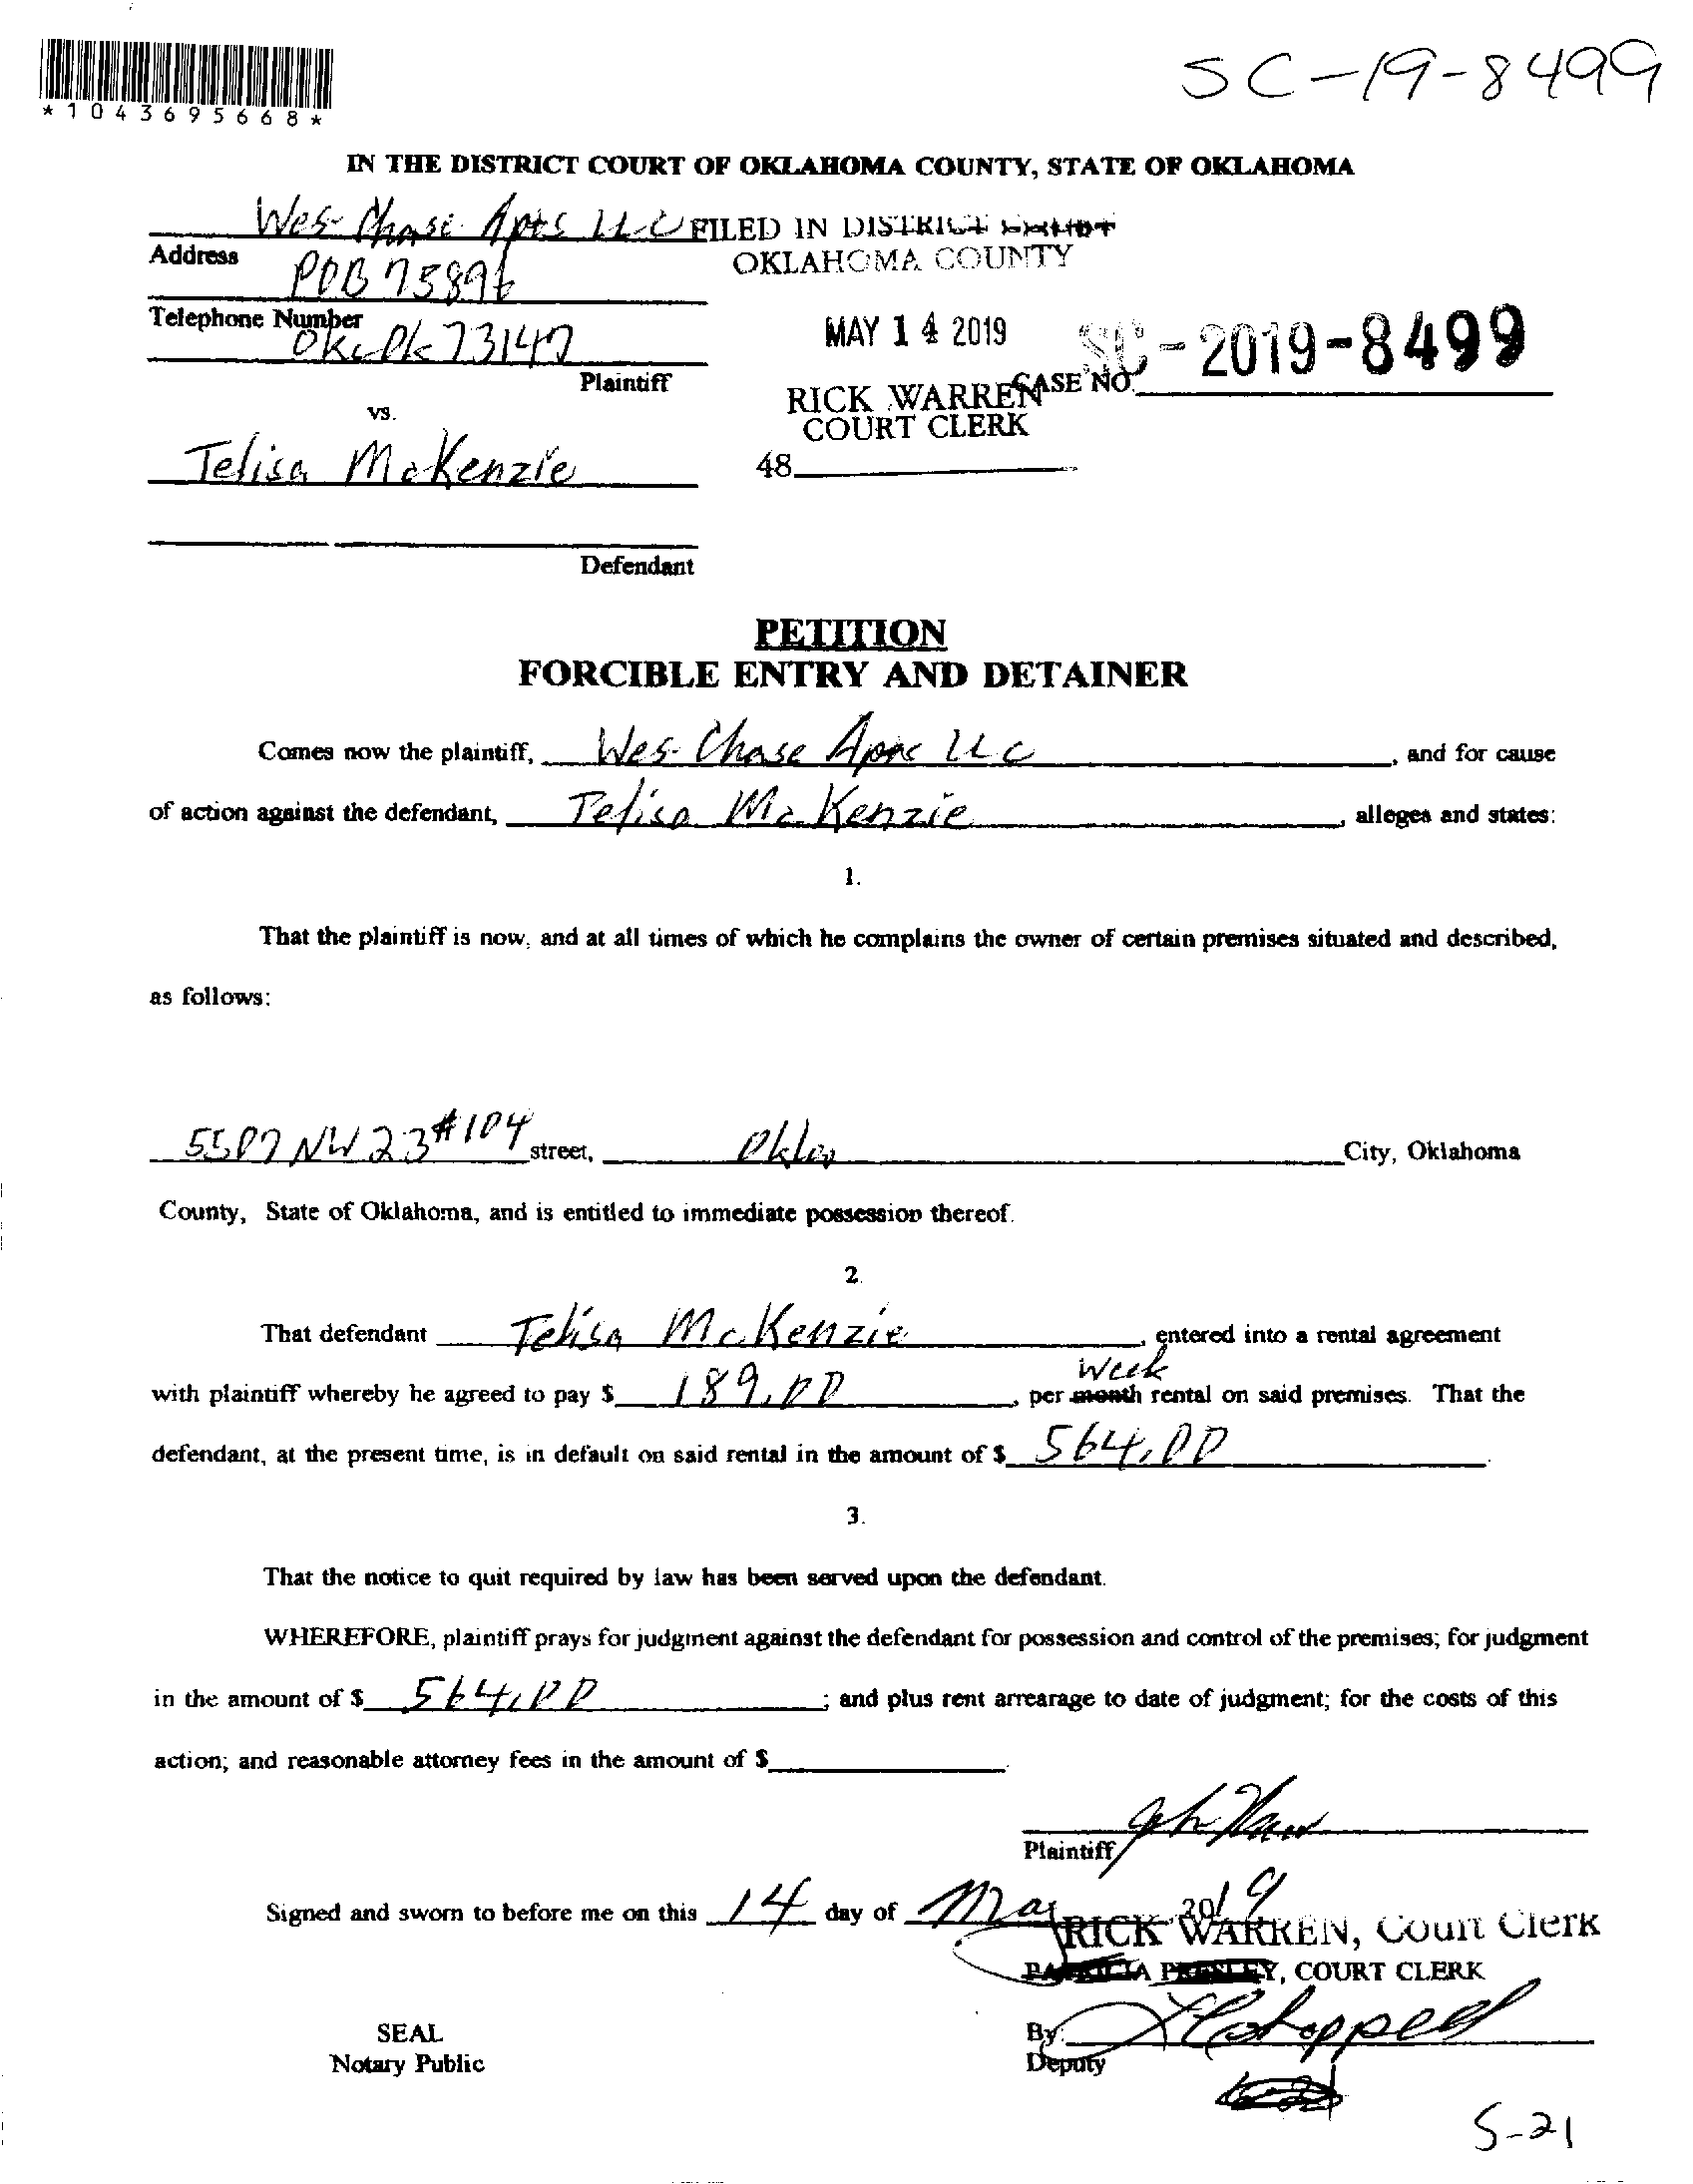 *1043695668*
SC-19-8499
IN THE DISTRICT COURT OF OKLAHOMA COUNTY, STATE OF OKLAHOMA
Wes-Chase Apts LLC
FILED IN DISTRICT COURT
OKLAHOMA COUNTY
Address
POB 75896
Telephone Number
Okc Ok 73147
MAY 14 2019
SC-2019-8499
Plaintiff
CASE NO.
RICK WARREN
COURT CLERK
vs.
48
Telisa McKenzie
Defendant
PETITION
FORCIBLE ENTRY AND DETAINER
Comes now the plaintiff, Wes-Chase Apts LLC, and for cause
of action against the defendant, Telisa McKenzie, alleges and states:
1.
That the plaintiff is now, and at all times of which he complains the owner of certain premises situated and described,
as follows:
5507 NW 23 #104 street, Okla City, Oklahoma
County, State of Oklahoma, and is entitled to immediate possession thereof.
2.
That defendant Telisa McKenzie, entered into a rental agreement
week
with plaintiff whereby he agreed to pay $ 189.00, per month rental on said premises. That the
defendant, at the present time, is in default on said rental in the amount of $ 564.00.
3.
That the notice to quit required by law has been served upon the defendant.
WHEREFORE, plaintiff prays for judgment against the defendant for possession and control of the premises; for judgment
in the amount of $ 564.00; and plus rent arrearage to date of judgment; for the costs of this
action; and reasonable attorney fees in the amount of $
Plaintiff
Signed and sworn to before me on this 14 day of May 2019
RICK WARREN, Court Clerk
PATRICIA PRESLEY, COURT CLERK
SEAL
By:
Notary Public
Deputy
5-21